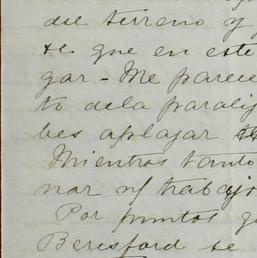 del terreno y
te que en este
gar - Me parece
to dela paraliz
bes aplazar
Mientras tanto
nar n/ trabajo
Por puntos q
Beresford se